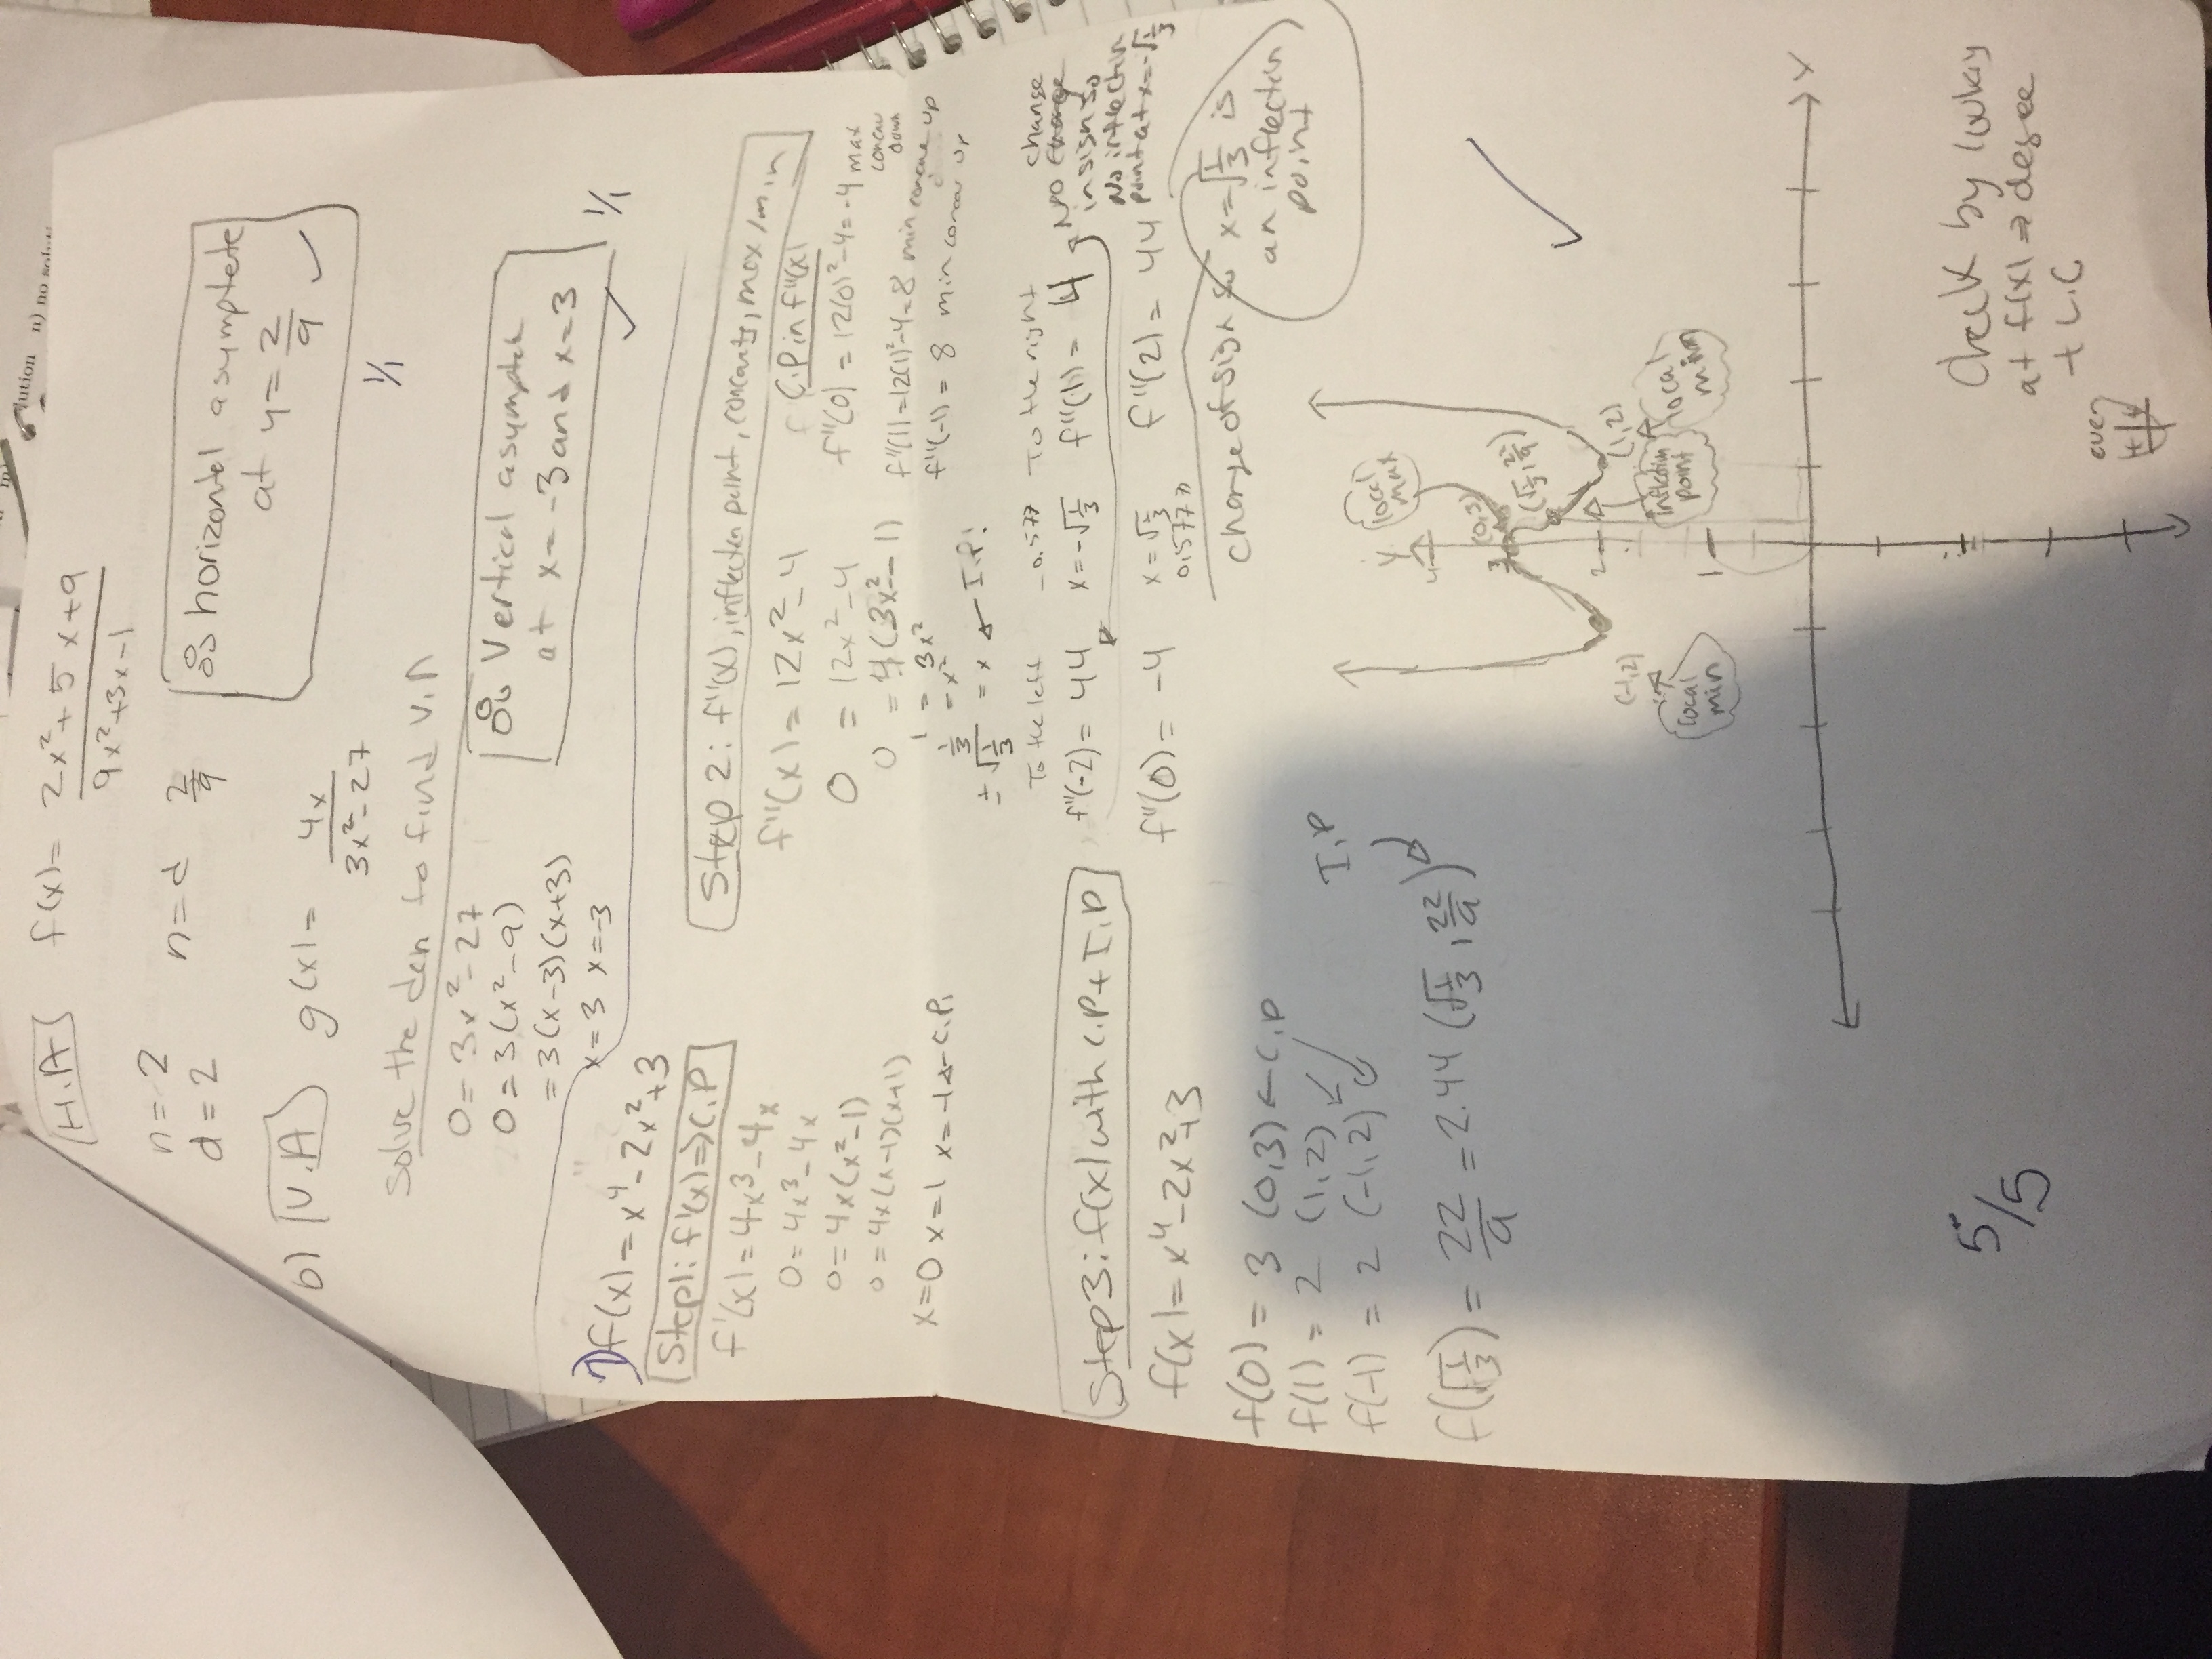 lution n) no solut
H.A f(x) = 2x²+5x+9 / 9x²+3x-1
n=2
d=2 n=d 2/9
∴ horizontal asymptote
at y = 2/9 ✓
1/1
b) V.A g(x) = 4x / 3x²-27
Solve the den to find V.A
0 = 3x²-27
0 = 3(x²-9)
= 3(x-3)(x+3)
x=3 x=-3
∴ Vertical asymptote
at x=-3 and x=3 ✓
1/1
7) f(x) = x⁴-2x²+3
Step 1: f'(x) ⇒ C.P
f'(x) = 4x³-4x
0 = 4x³-4x
0 = 4x(x²-1)
0 = 4x(x-1)(x+1)
x=0 x=1 x=-1 ← C.P.
Step 2: f''(x), inflection point, concavity, max/min
f''(x) = 12x²-4
0 = 12x²-4
0 = 4(3x²-1)
1 = 3x²
1/3 = x²
±√1/3 = x ← I.P!
C.P in f''(x)
f''(0) = 12(0)²-4 = -4 max
concav
down
f''(1) = 12(1)²-4 = 8 min concave up
f''(-1) = 8 min concav up
To the left -0.577 To the right
f''(-2) = 44 x=-√1/3 f''(1) = 4
NO change
in sign so
No inflection
point at x=-√1/3
f''(0) = -4 x=√1/3 f''(2) = 44
0.577
change of sign so x=√1/3 is
an inflection
point
Step 3: f(x) with C.P + I.P
f(x) = x⁴-2x²+3
f(0) = 3 (0,3) ← C.P
f(1) = 2 (1,2)
f(-1) = 2 (-1,2)
I.P
f(√1/3) = 22/9 = 2.44 (√1/3, 22/9)
✓
y
4
local
max
3
(0,3)
(√1/3, 22/9)
2
(1,2)
inflection
point
local
min
(-1,2)
local
min
1
x
5/5
Check by looking
at f(x) ⇒ degree
+ L.C
even